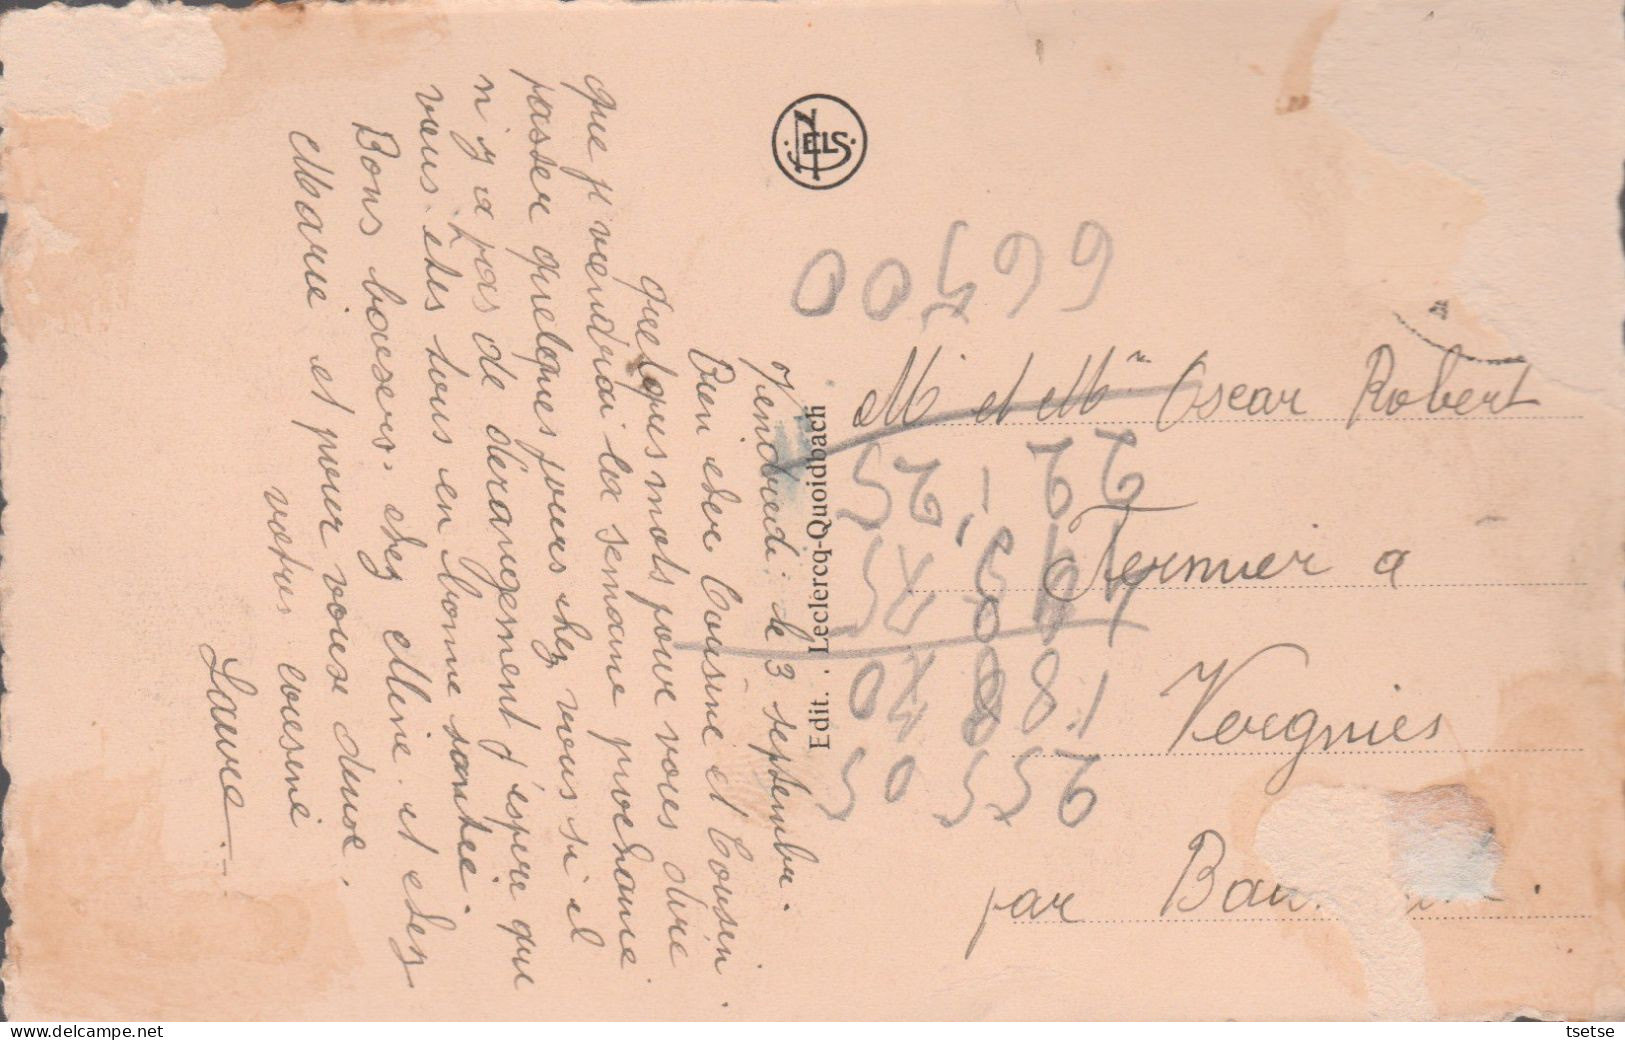 Vendredi. le 3 septembre.
Bien cher Cousine et Cousin.
quelques mots pour vous dire
que je viendrai la semaine prochaine
passer quelques jours chez vous si il
n'y a pas de dérangement j'espère que
vous êtes tous en bonne santée.
Bons baisers. chez Aline. et chez
Marie et pour vous deux.
votre cousine
Laure.
NELS
Edit. Leclercq-Quoidbach
66500
M et Mme Oscar Robert
Fermier a
Vergnies
par
22 1'25
188 40
255 05
tsetse